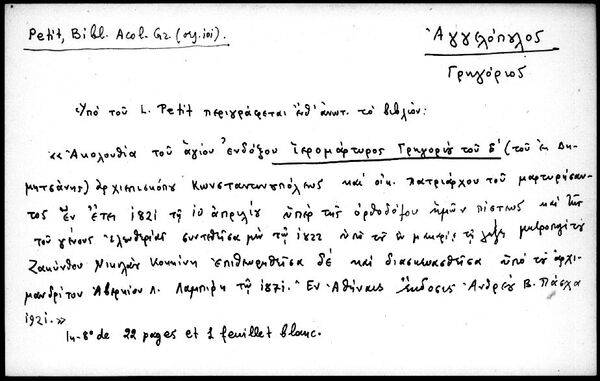 Petit, Bibl. Acol. Gr. (σγ. ιοι).
Ἀγγελόπουλος
Γρηγόριος
Ὑπὸ τοῦ L. Petit περιγράφεται ἔνθ' ἀνωτ. τὸ βιβλίον:
«Ἀκολουθία τοῦ ἁγίου ἐνδόξου ἱερομάρτυρος Γρηγορίου τοῦ Ε' (τοῦ ἐκ Δη-
μητσάνης) ἀρχιεπισκόπου Κωνσταντινουπόλεως καὶ οἰκ. πατριάρχου τοῦ μαρτυρήσαν-
τος ἐν ἔτει 1821 τῇ 10 ἀπριλίου ὑπὲρ τῆς ὀρθοδόξου ἡμῶν πίστεως καὶ τῆς
τοῦ γένους ἐλευθερίας συντεθεῖσα μὲν τῷ 1822 ὑπὸ τοῦ ἐν μακαρίᾳ τῇ λήξει μητροπολίτου
Ζακύνθου Νικολάου Κοκκίνη ἐπιθεωρηθεῖσα δὲ καὶ διασκευασθεῖσα ὑπὸ τοῦ ἀρχι-
μανδρίτου Ἀβερκίου Λ. Λαμπίρη τῷ 1871. Ἐν Ἀθήναις ἔκδοσις Ἀνδρέου Β. Πάσχα
1921.»
In-8° de 22 pages et 1 feuillet blanc.